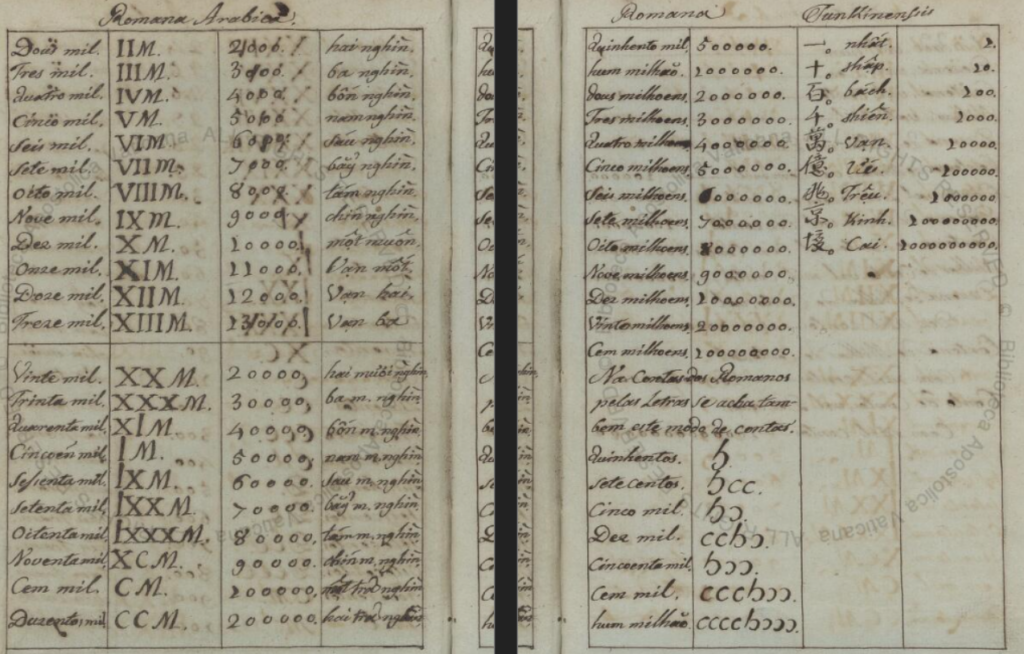 Romana Arabica.
Dous mil. IIM. 2000. hai nghìn.
Tres mil. IIIM. 3000. ba nghìn.
Quatro mil. IVM. 4000. bốn nghìn.
Cinco mil. VM. 5000. nam nghìn.
Seis mil. VIM. 6000. sáu nghìn.
Sete mil. VIIM. 7000. bảy nghìn.
Oito mil. VIIIM. 8000. tám nghìn.
Nove mil. IXM. 9000. chín nghìn.
Dez mil. XM. 10000. một muôn.
Onze mil. XIM. 11000. Vạn một.
Doze mil. XIIM. 12000. Vạn hai.
Treze mil. XIIIM. 13000. Vạn ba
Vinte mil. XXM. 20000, hai mươi nghìn.
Trinta mil. XXXM. 30000, ba m. nghìn.
Quarenta mil. XlM. 40000, bốn m. nghìn
Cincoen mil. lM. 50000. nam m. nghìn
Sesenta mil. lXM. 60000. sáu m. nghìn.
Setenta mil, lXXM. 70000. bảy m. nghìn.
Oitenta mil, lXXXM. 80000. tám m. nghìn.
Noventa mil, XCM. 90000. chín m. nghìn.
Cem mil. CM. 100000. một trăm nghìn
Duzentos mil CCM. 200000. hai trăm nghìn
Romana Tunkinensis
Quinhento mil. 500000. 一。 nhất. 1.
hum milhaõ. 1000000. 十。 thập. 10.
dous milhoens. 2000000. 百。 bách. 100.
Tres milhoens. 3000000. 千。 thiên. 1000.
Quatro milhoens. 4000000. 萬。 Vạn. 10000.
Cinco milhoens. 5000000. 億。 Ức. 100000.
Seis milhoens. 6000000. 兆。 Triệu. 1000000.
Sete milhoens. 7000000. 京。 Kinh. 100000000.
Oito milhoens. 8000000. 垓。 Cai. 1000000000.
Nove milhoens. 9000000.
Dez milhoens. 10000000.
Vinte milhoens. 20000000.
Cem milhoens. 100000000.
Na Contas dos Romanos
pelas Letras se acha tam
bem este modo de contar.
Quinhentos. Ɔ.
sete centos. Ɔcc.
Cinco mil. hↄ.
Dez mil. cchↄ.
Cincoenta mil. hↄↄ.
Cem mil. ccchↄↄ.
hum milhaõ. cccchↄↄↄ.